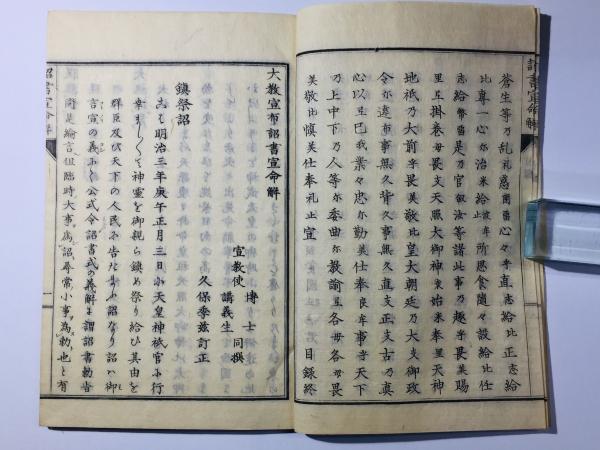 蒼生等乃乱礼惑
心々乎直志給比正志給
比専一心尓治米給止
所思食随々設給比任
志給幣当是乃官
汝等諸此事乃趣乎畏美賜
里互掛巻毛畏支天照大御神乎始米奉里天神
地祇乃大前乎畏美敬比皇大朝廷乃大支御政
令尓違布事無久背久事無久直支正支古乃真
心以互己我業々忠尓勤美仕奉良牟事乎天下
乃上中下乃人等尓委曲尓教諭互各毛各毛畏
美敬比慎美仕奉礼止宣
目録終
大教宣布詔書宣命解
宣教使
博士
講義生
同撰
久保季茲訂正
鎮祭詔
こは明治三年庚午正月三日に天皇神祇官に行
幸ましくて神霊を御親ら鎮め祭り給ひ其由を
群臣及び天下の人民に告たまふ詔なり詔ハ御
言宣の義ふく公式令詔書式の義解に謂詔書勅旨
同是綸言但臨時大事為詔尋常小事為勅也と有